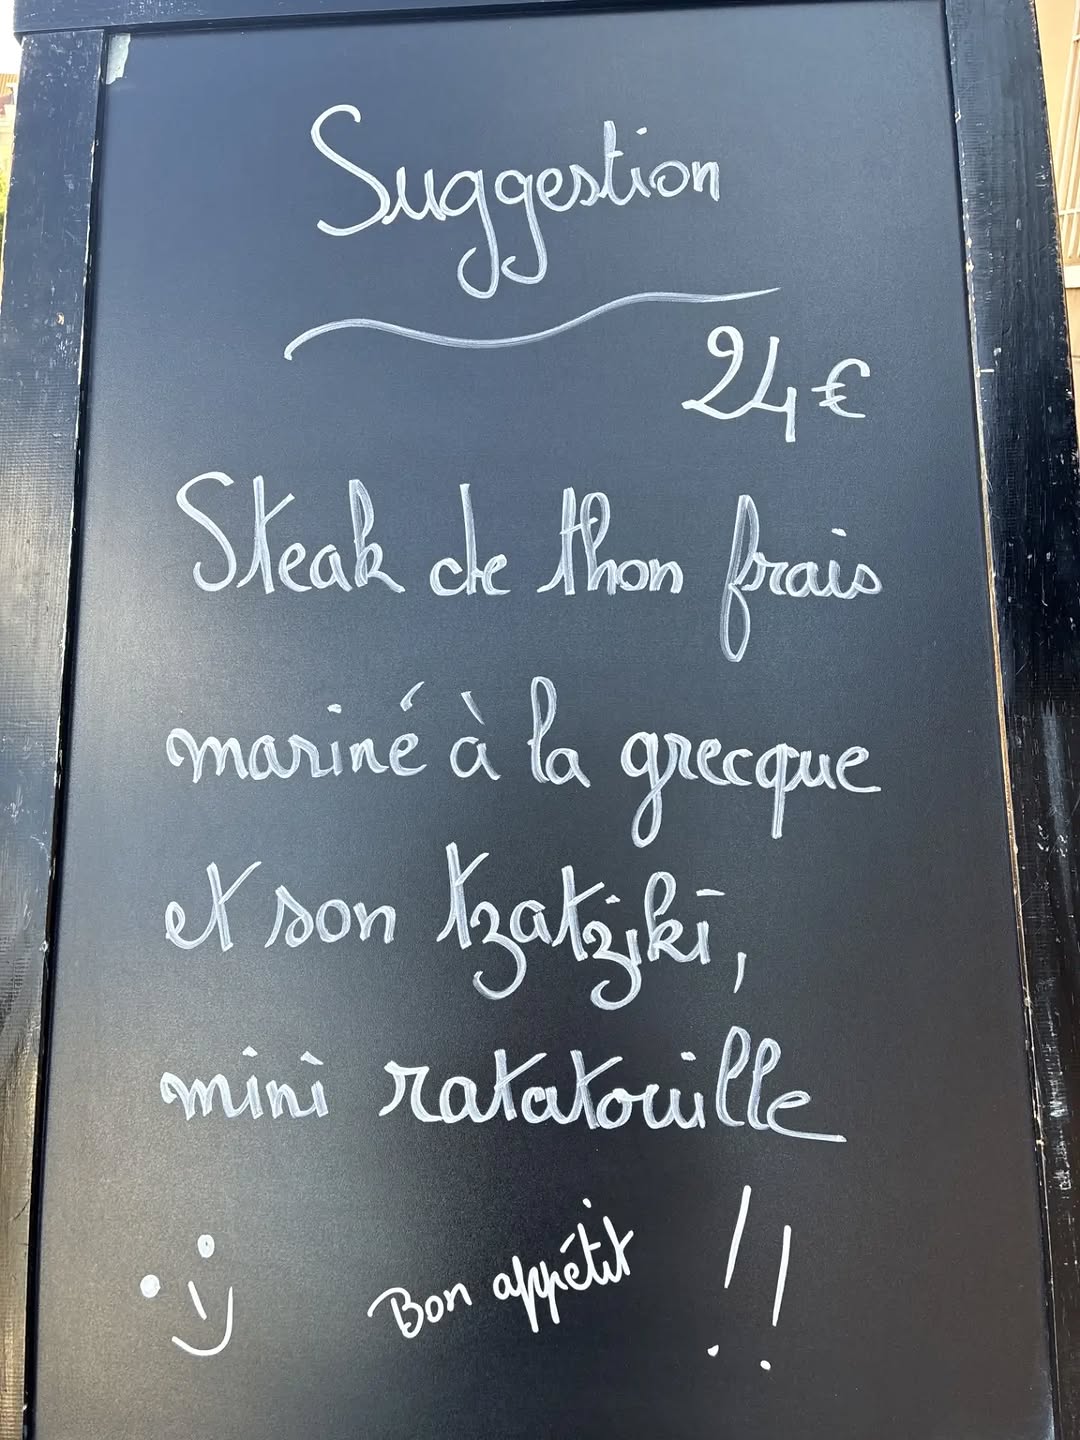 Suggestion
24€
Steak de thon frais
mariné à la grecque
et son tzatziki,
mini ratatouille
Bon appétit !!